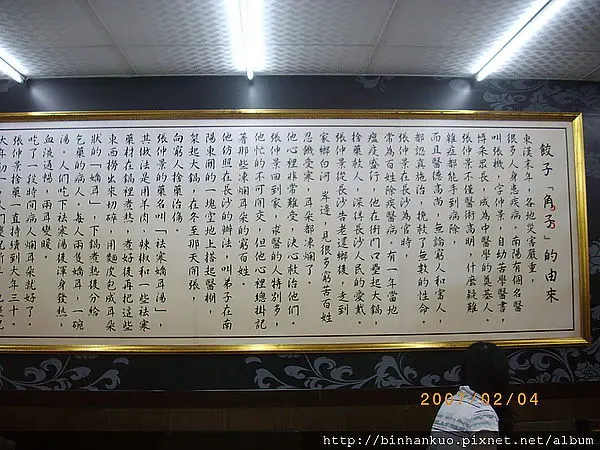 餃子「角子」的由來
東漢末年，各地災害嚴重，
很多人身患疾病。南陽有個名醫
叫張機，字仲景，自幼苦學醫書，
博采眾長，成為中醫學的奠基人。
張仲景不僅醫術高明，什麼疑難
雜症都能手到病除，
而且醫德高尚，無論窮人和富人，
都認真施治，挽救了無數的性命。
張仲景在長沙為官時，
常為百姓除疾醫病。有一年當地
瘟疫盛行，他在衙門口壘起大鍋，
捨藥救人，深得長沙人民的愛戴。
張仲景從長沙告老還鄉後，走到
家鄉白河岸邊，見很多窮苦百姓
忍饑受寒，耳朵都凍爛了。
他心裡非常難受，決心救治他們。
張仲景回到家，求醫的人特別多，
他忙的不可開交，但他心裡總掛記
著那些凍爛耳朵的窮百姓。
他仿照在長沙的辦法，叫弟子在南
陽東關的一塊空地上搭起醫棚，
架起大鍋，在冬至那天開張，
向窮人捨藥治傷。
張仲景的藥名叫「祛寒嬌耳湯」，
其做法是用羊肉、辣椒和一些祛寒
藥材在鍋裡煮熬，煮好後再把這些
東西撈出來切碎，用麵皮包成耳朵
狀的「嬌耳」，下鍋煮熟後分給
乞藥的病人。每人兩隻嬌耳，一碗
湯。人們吃下祛寒湯後渾身發熱，
血液通暢，兩耳變暖。
吃了一段時間病人爛耳朵就好了。
張仲景捨藥一直持續到大年三十。
2007/02/04
http://binhankuo.pixnet.net/blog